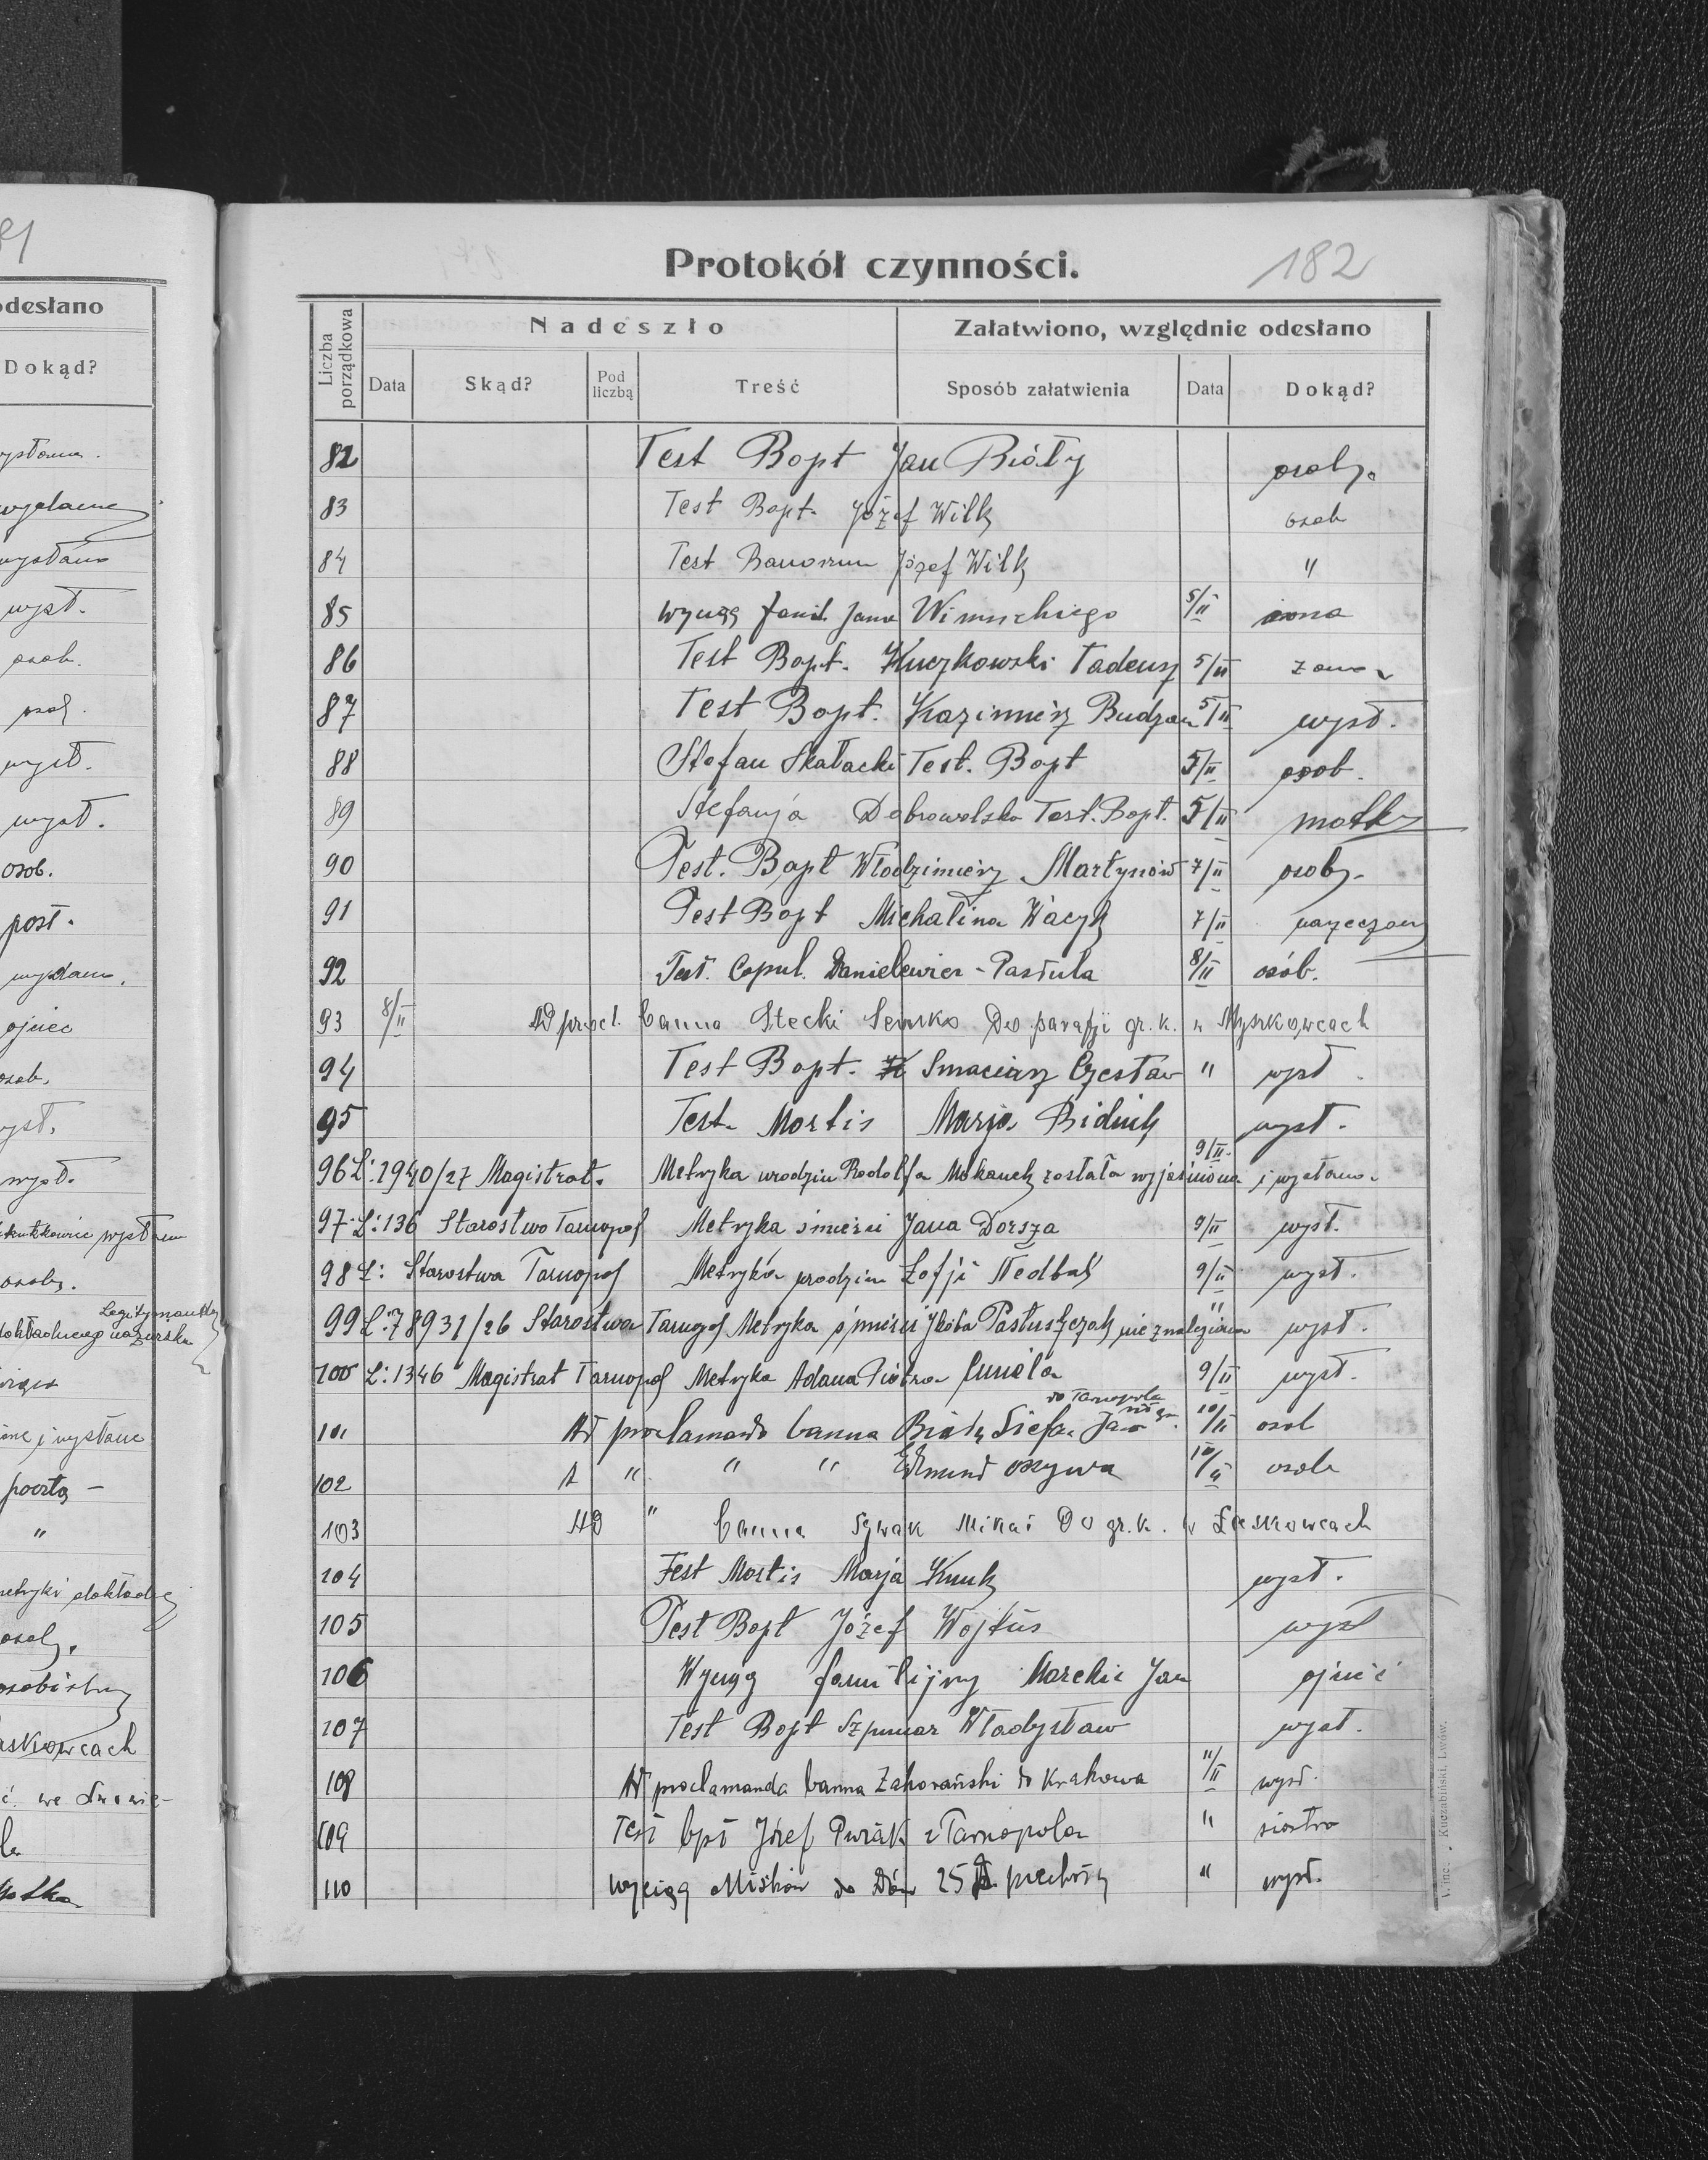 91
odesłano
Dokąd?
wysłano
wyst.
osob.
wyst.
wyst.
osob.
post.
ojciec
osob.
wyst.
poczta —
"
Protokół czynności.
182
Liczba porządkowa
Nadeszło
Załatwiono, względnie odesłano
Data Skąd? Pod liczbą Treść Sposób załatwienia Data Dokąd?
82 Test Bapt Jan Biały osob.
83 Test Bapt. Józef Wilk osob
84 Test Bannorum Józef Wilk "
85 Wyciąg famil. Jana 5/II
86 Test Bapt. Kuczkowski Tadeusz 5/II
87 Test Bapt. Kazimierz Budzan 5/II wyst.
88 Stefan Skałacki Test. Bapt 5/II osob.
89 Stefanja Dobrowolska Test. Bapt. 5/II matka
90 Test. Bapt Włodzimierz Martynów 7/II osob.
91 Test Bapt Michalina Wacyk 7/II narzeczony
92 Test. Copul. Danielewicz - Pastula 8/II osób.
93 8/II Ad procl. banna Stecki Senko Do parafji gr. k. w Myszkowcach
94 Test Bapt. Smaciarz Czesław " wyst.
95 Test. Mortis Marja Bidnik wyst.
96 L: 1940/27 Magistrat. Metryka urodzin Rodolfa Mokanek została wyjaśniona i wysłano. 9/II.
97 L: 136 Starostwo Tarnopol Metryka śmierci Jana Dorsza 9/II wyst.
98 L: Starostwa Tarnopol Metryka urodzin Zofji Nedbał 9/II wyst.
99 L: 78931/26 Starostwa Tarnopol Metryka śmierci Jkóba Pastuszczak nie znaleziona " wyst.
100 L: 1346 Magistrat Tarnopol Metryka Adama Piotra 9/II wyst.
101 Ad proclamanda banna Jan do Tarnopola 10/II osob
102 A " " " Edmund 10/II osob
103 AD " banna Sywak Mikai Do gr. k. w
104 Test Mortis Marja Knuk wyst.
105 Test Bapt Józef Wojtus wyst
106 Wyciąg familijny Marekie Jan ojciec
107 Test Bapt Szpunar Władysław wyst.
108 Ad proclamanda banna Zahorański do Krakowa 11/II wyst.
109 Test bpt Józef z Tarnopola " siostra
110 wyciąg Miśków do 25 piechoty " wyst.